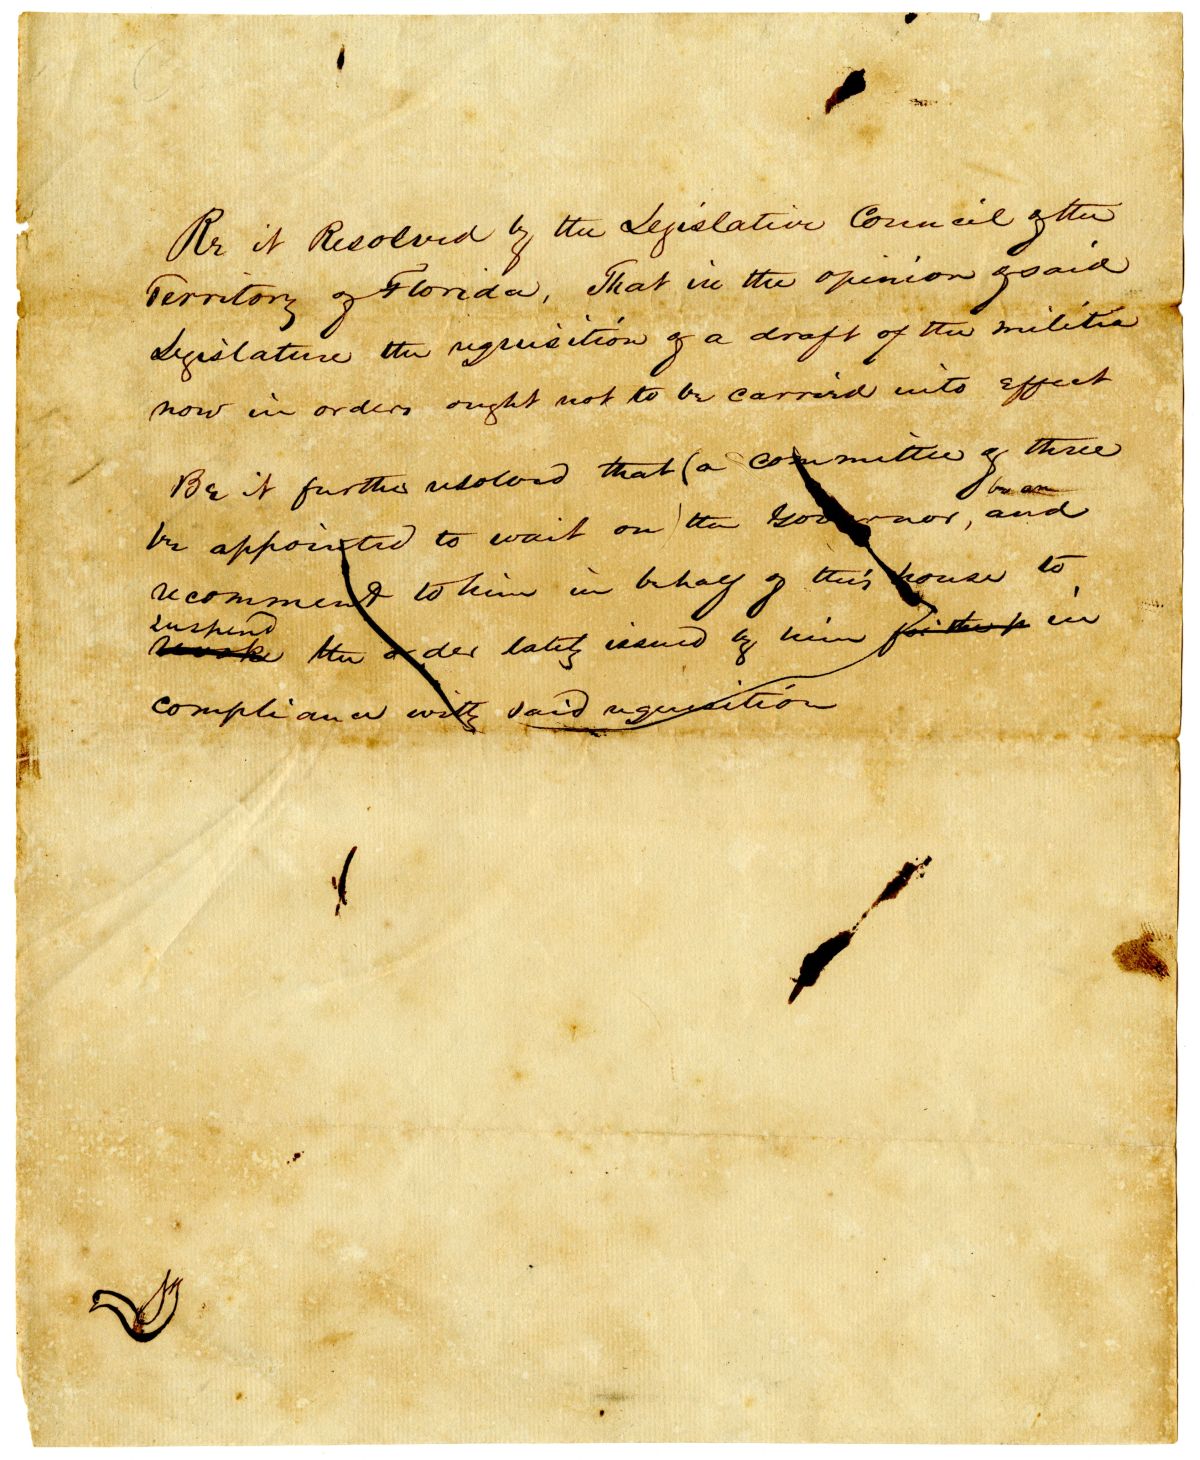 Be it Resolved by the Legislative Council of the
Territory of Florida, That in the opinion of said
Legislature the requisition of a draft of the militia
now in orders ought not to be carried into effect
Be it further resolved that (a committee of three
be an
be appointed to wait on) the Governor, and
recommend to him in behalf of this house to
suspend
revoke the order lately issued by him in
compliance with said requisition